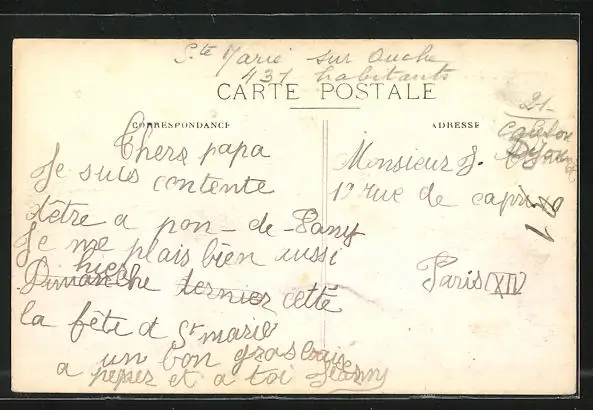 Ste Marie sur Ouche
431 habitants
CARTE POSTALE
CORRESPONDANCE
ADRESSE
21-
Dijon
Chers papa
Je suis contente
d'être a pon-de-Pany
Je me plais bien ussi
hier
Dimanche dernier cetté
la fête d St marie
un bon gros
a peper et a toi Jeanny
Monsieur J.
1 rue de capri
Paris (XIV)